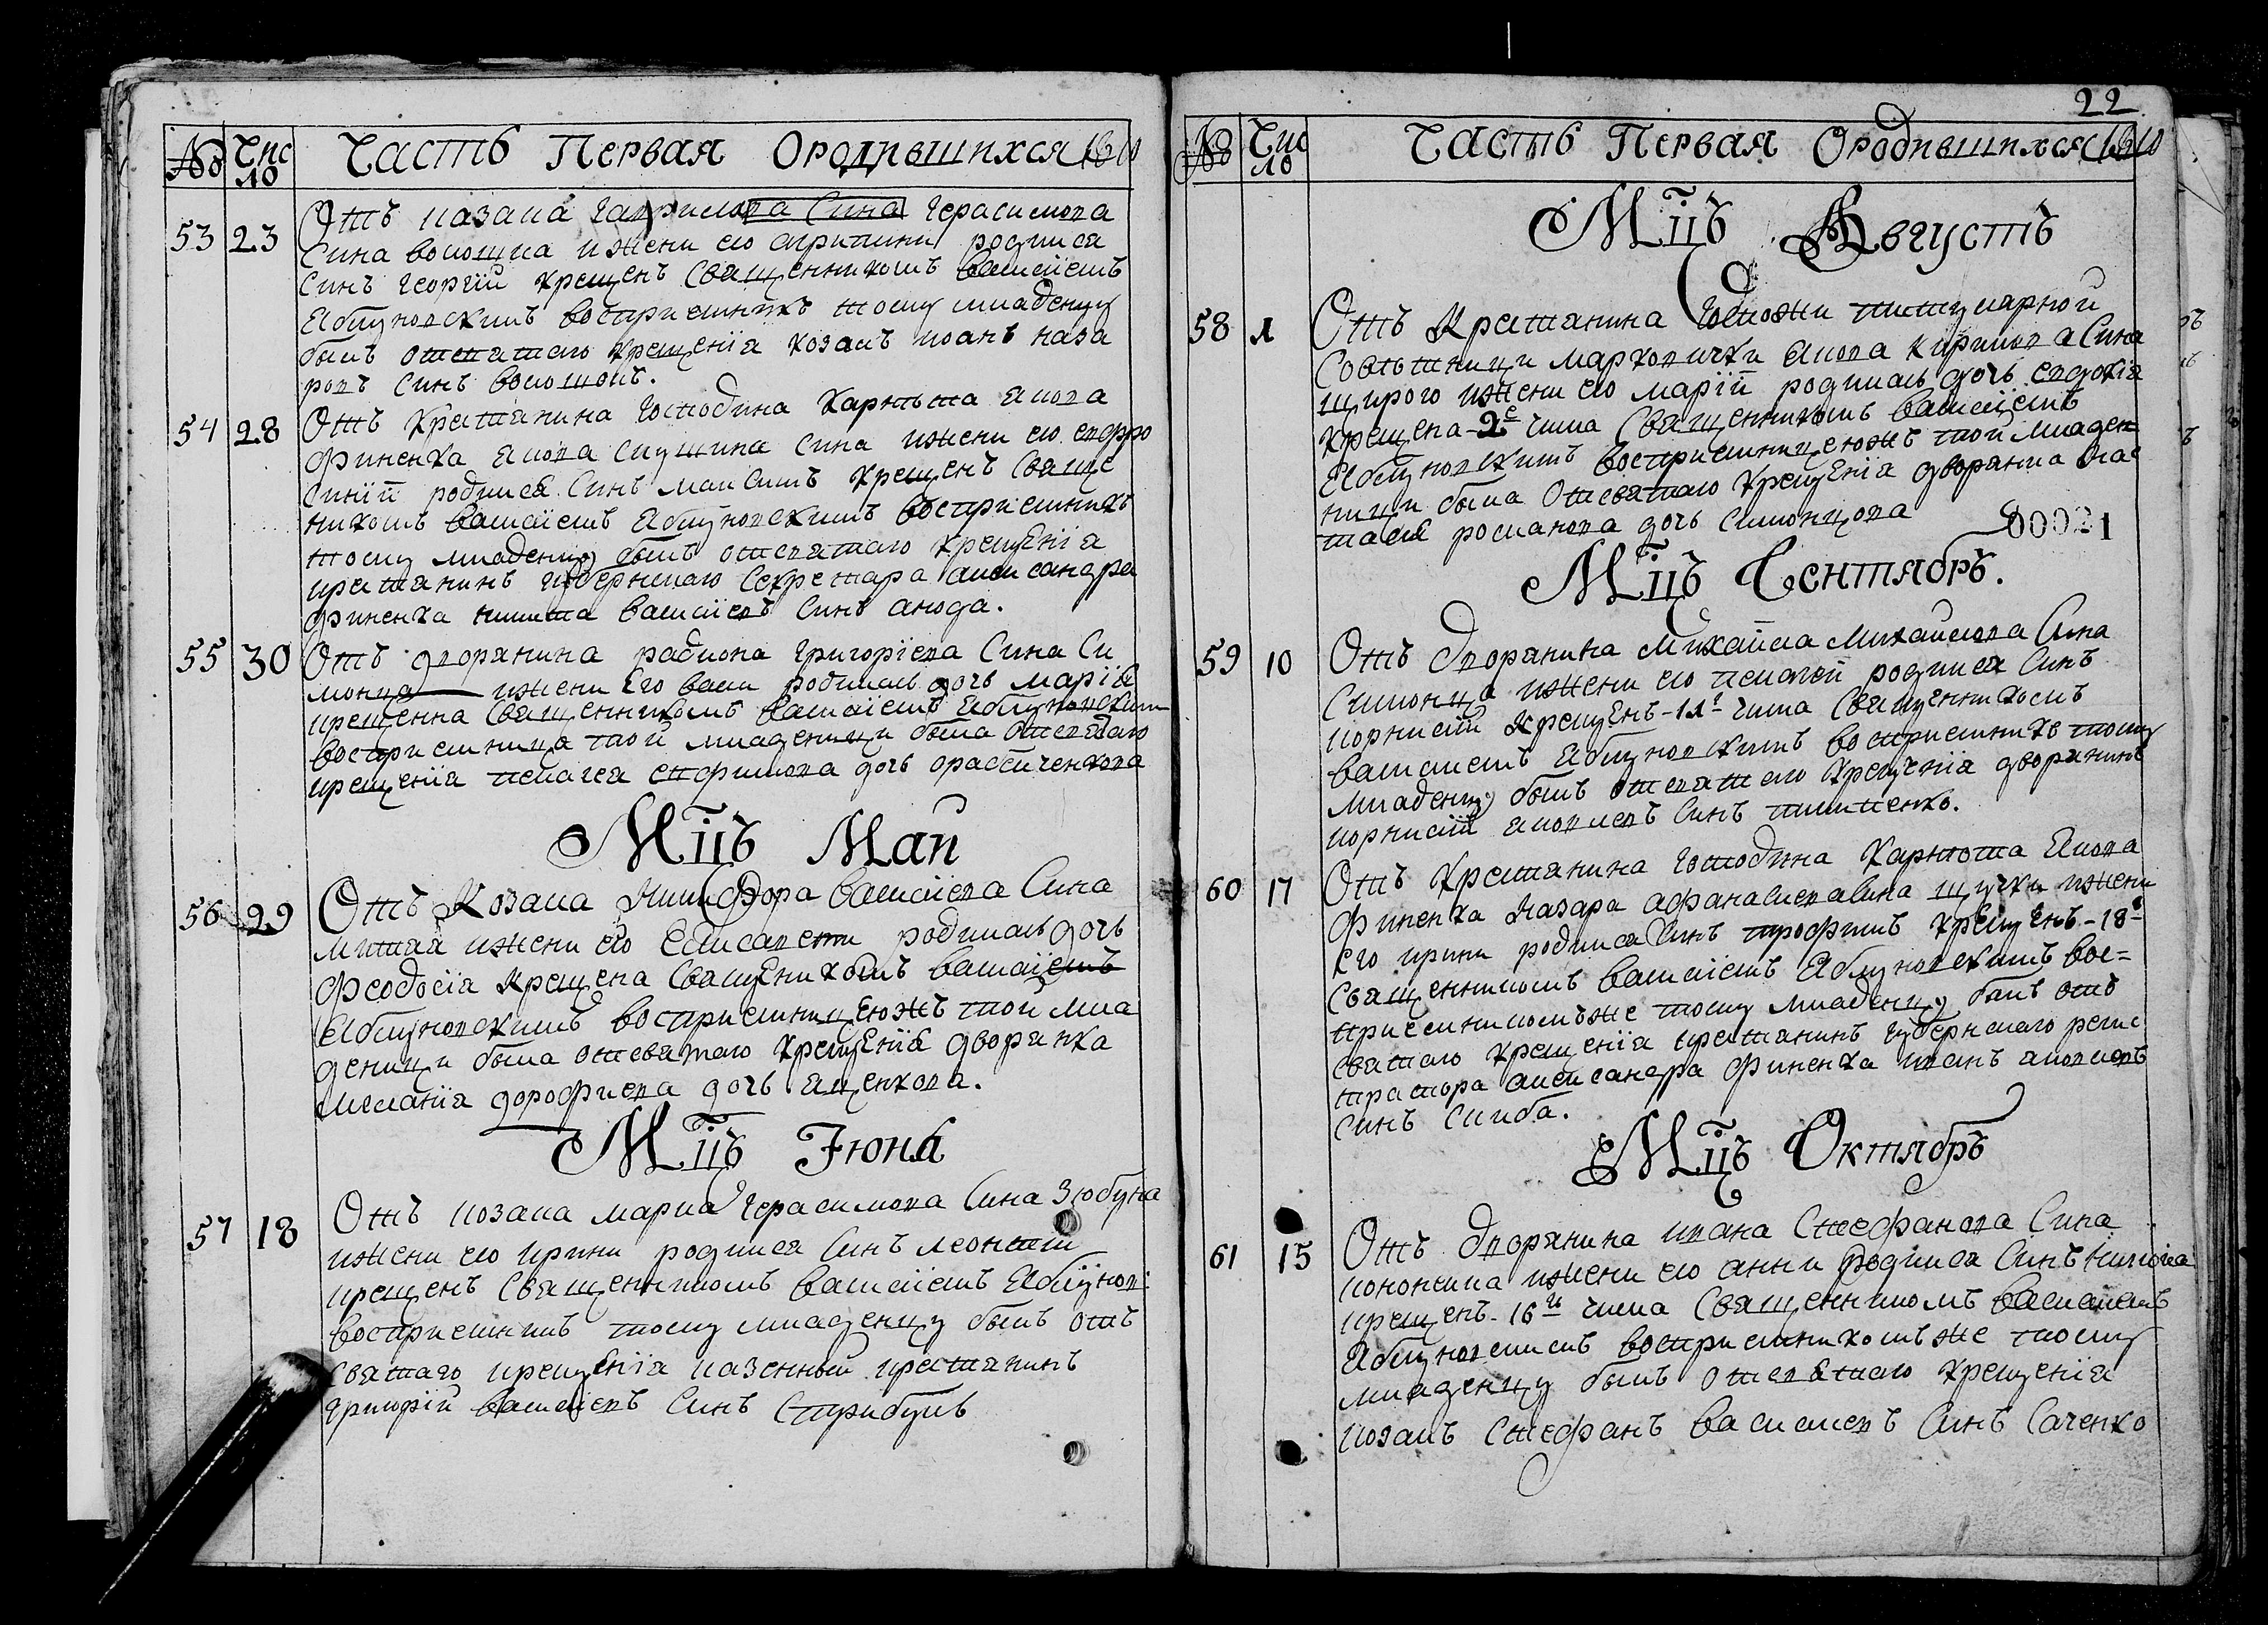 № Число Часть Первая Ородившихся
53 23 Отъ козака Гаврилова Сина Герасимова
Сина волошка ижени его агрипини родился
Синъ георгій крещенъ Священникомъ василіемъ
Яблуновскимъ воспріемникъ тому младенцу
былъ отсвятаго крещенія козакъ иоанъ наза
ровъ синъ волошонъ.
54 28 Отъ Крестянина Господина Карпѣта Якова
Финенка Якова Слушина сина ижени его ефро
синій родился Синъ максимъ крещенъ Свяще
никомъ василіемъ Яблуновскимъ воспріемникъ
тому младенцу былъ отсвятаго крещенія
крестянинъ губернскаго Секретара александра
финенка никита василіевъ синъ
55 30 Отъ дворянина радиона Григоріева Сина Си
монца ижени Его васи родилась дочь марія
крещенна Священникомъ василіемъ Яблуновским
воспріемница той младеници была отсвятаго
крещенія пелагея дочь
Мцъ Май
56 29 Отъ Козака Никифора василіева Сина
ижени его Елисавети родилась дочь
Феодосія крещена Священикомъ василіемъ
Яблуновскимъ воспріемницеюжъ той мла
деници была отсвятаго крещенія дворянка
меланія дорофиева дочь яценкова.
Мцъ Іюня
57 18 Отъ козака марка Герасимова Сина Зюбука
ижени его ирини родился Синъ леонтий
крещенъ Священникомъ василіемъ Яблунов:
воспріемникъ тому младенцу былъ отъ
святаго крещенія казенный крестянинъ
григорій василіевъ Синъ Стрибуль
22
№ Число Часть Первая Ородившихся
Мцъ Августъ
58 1 Отъ Крестянина Госпожи титулярной
Совѣтници марковички Якова кирилова Сина
щирого ижени его марій родилась дочь евдокія
крещена 2е числа Священникомъ василіемъ
Яблуновскимъ воспріемницеюжъ той младен
ници была отсвятаго крещенія дворянка
романова дочь Симонцова
00021
Мцъ Сентябръ.
59 10 Отъ дворянина Михайла Михайлова Сина
Симонца ижени его пелагей родился Синъ
корнилій крещенъ 11г числа Священникомъ
василіемъ Яблуновскимъ воспріемникъ тому
младенцу былъ отсвятаго крещенія дворянинъ
корнилій яковлевъ Синъ
60 17 Отъ Крестянина Господина Карпота Якова
Финенка Назара афанасиева сина щучки ижени
Его ирини родился Синъ трофимъ крещенъ 18г
Священникомъ василіемъ Яблуновскимъ вос=
приемникомъже тому младенцу былъ отъ
святаго крещенія крестянинъ губернскаго регис
тратора александра Финенка иванъ яковлевъ
синъ Скиба.
Мцъ Октябръ
61 15 Отъ дворянина ивана Стефанова Сина
кононска ижени его анни родился Синъ никола
крещенъ 16го числа Священникомъ василіемъ
Яблуновскимъ воспріемникомъже тому
младенцу былъ отсвятаго крещенія
козакъ Стефанъ василиевъ Синъ Саченко